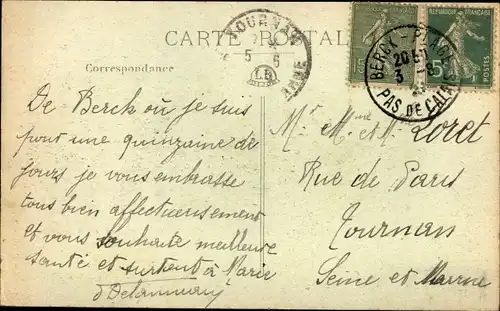 CARTE POSTALE
Correspondance
TOURNAN
5 - 6
BERCK-PLAGE
3 - 6
PAS DE CALAIS
15
5
POSTES
De Berck où je suis
pour une quinzaine de
jours je vous embrasse
tous bien affectueusement
et vous souhaite meilleure
santé et surtout à Marie
Mr Mme et M. Loret
Rue de Paris
Tournan
Seine et Marne